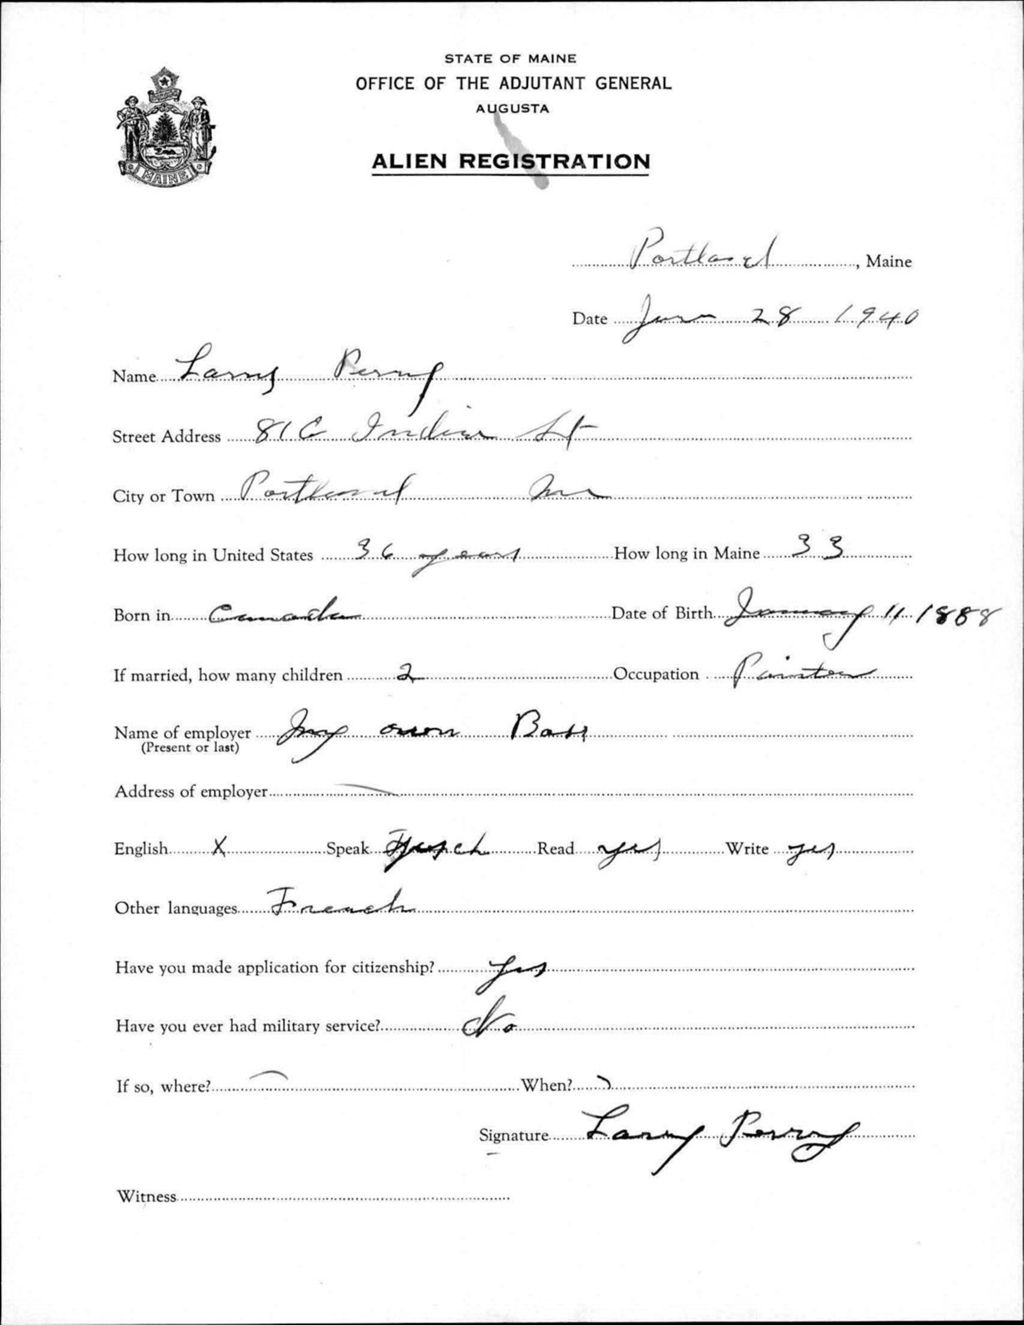 STATE OF MAINE
OFFICE OF THE ADJUTANT GENERAL
AUGUSTA
ALIEN REGISTRATION
MAINE
Portland, Maine
Date June 28 1940
Name Larry Perry
Street Address 81 C India St
City or Town Portland Me
How long in United States 36 years How long in Maine 33
Born in Canada Date of Birth January 11 1888
If married, how many children 2 Occupation Painter
Name of employer My own Boss
(Present or last)
Address of employer
English X Speak Read yes Write yes
Other languages French
Have you made application for citizenship? Yes
Have you ever had military service? No
If so, where? When?
Signature Larry Perry
Witness